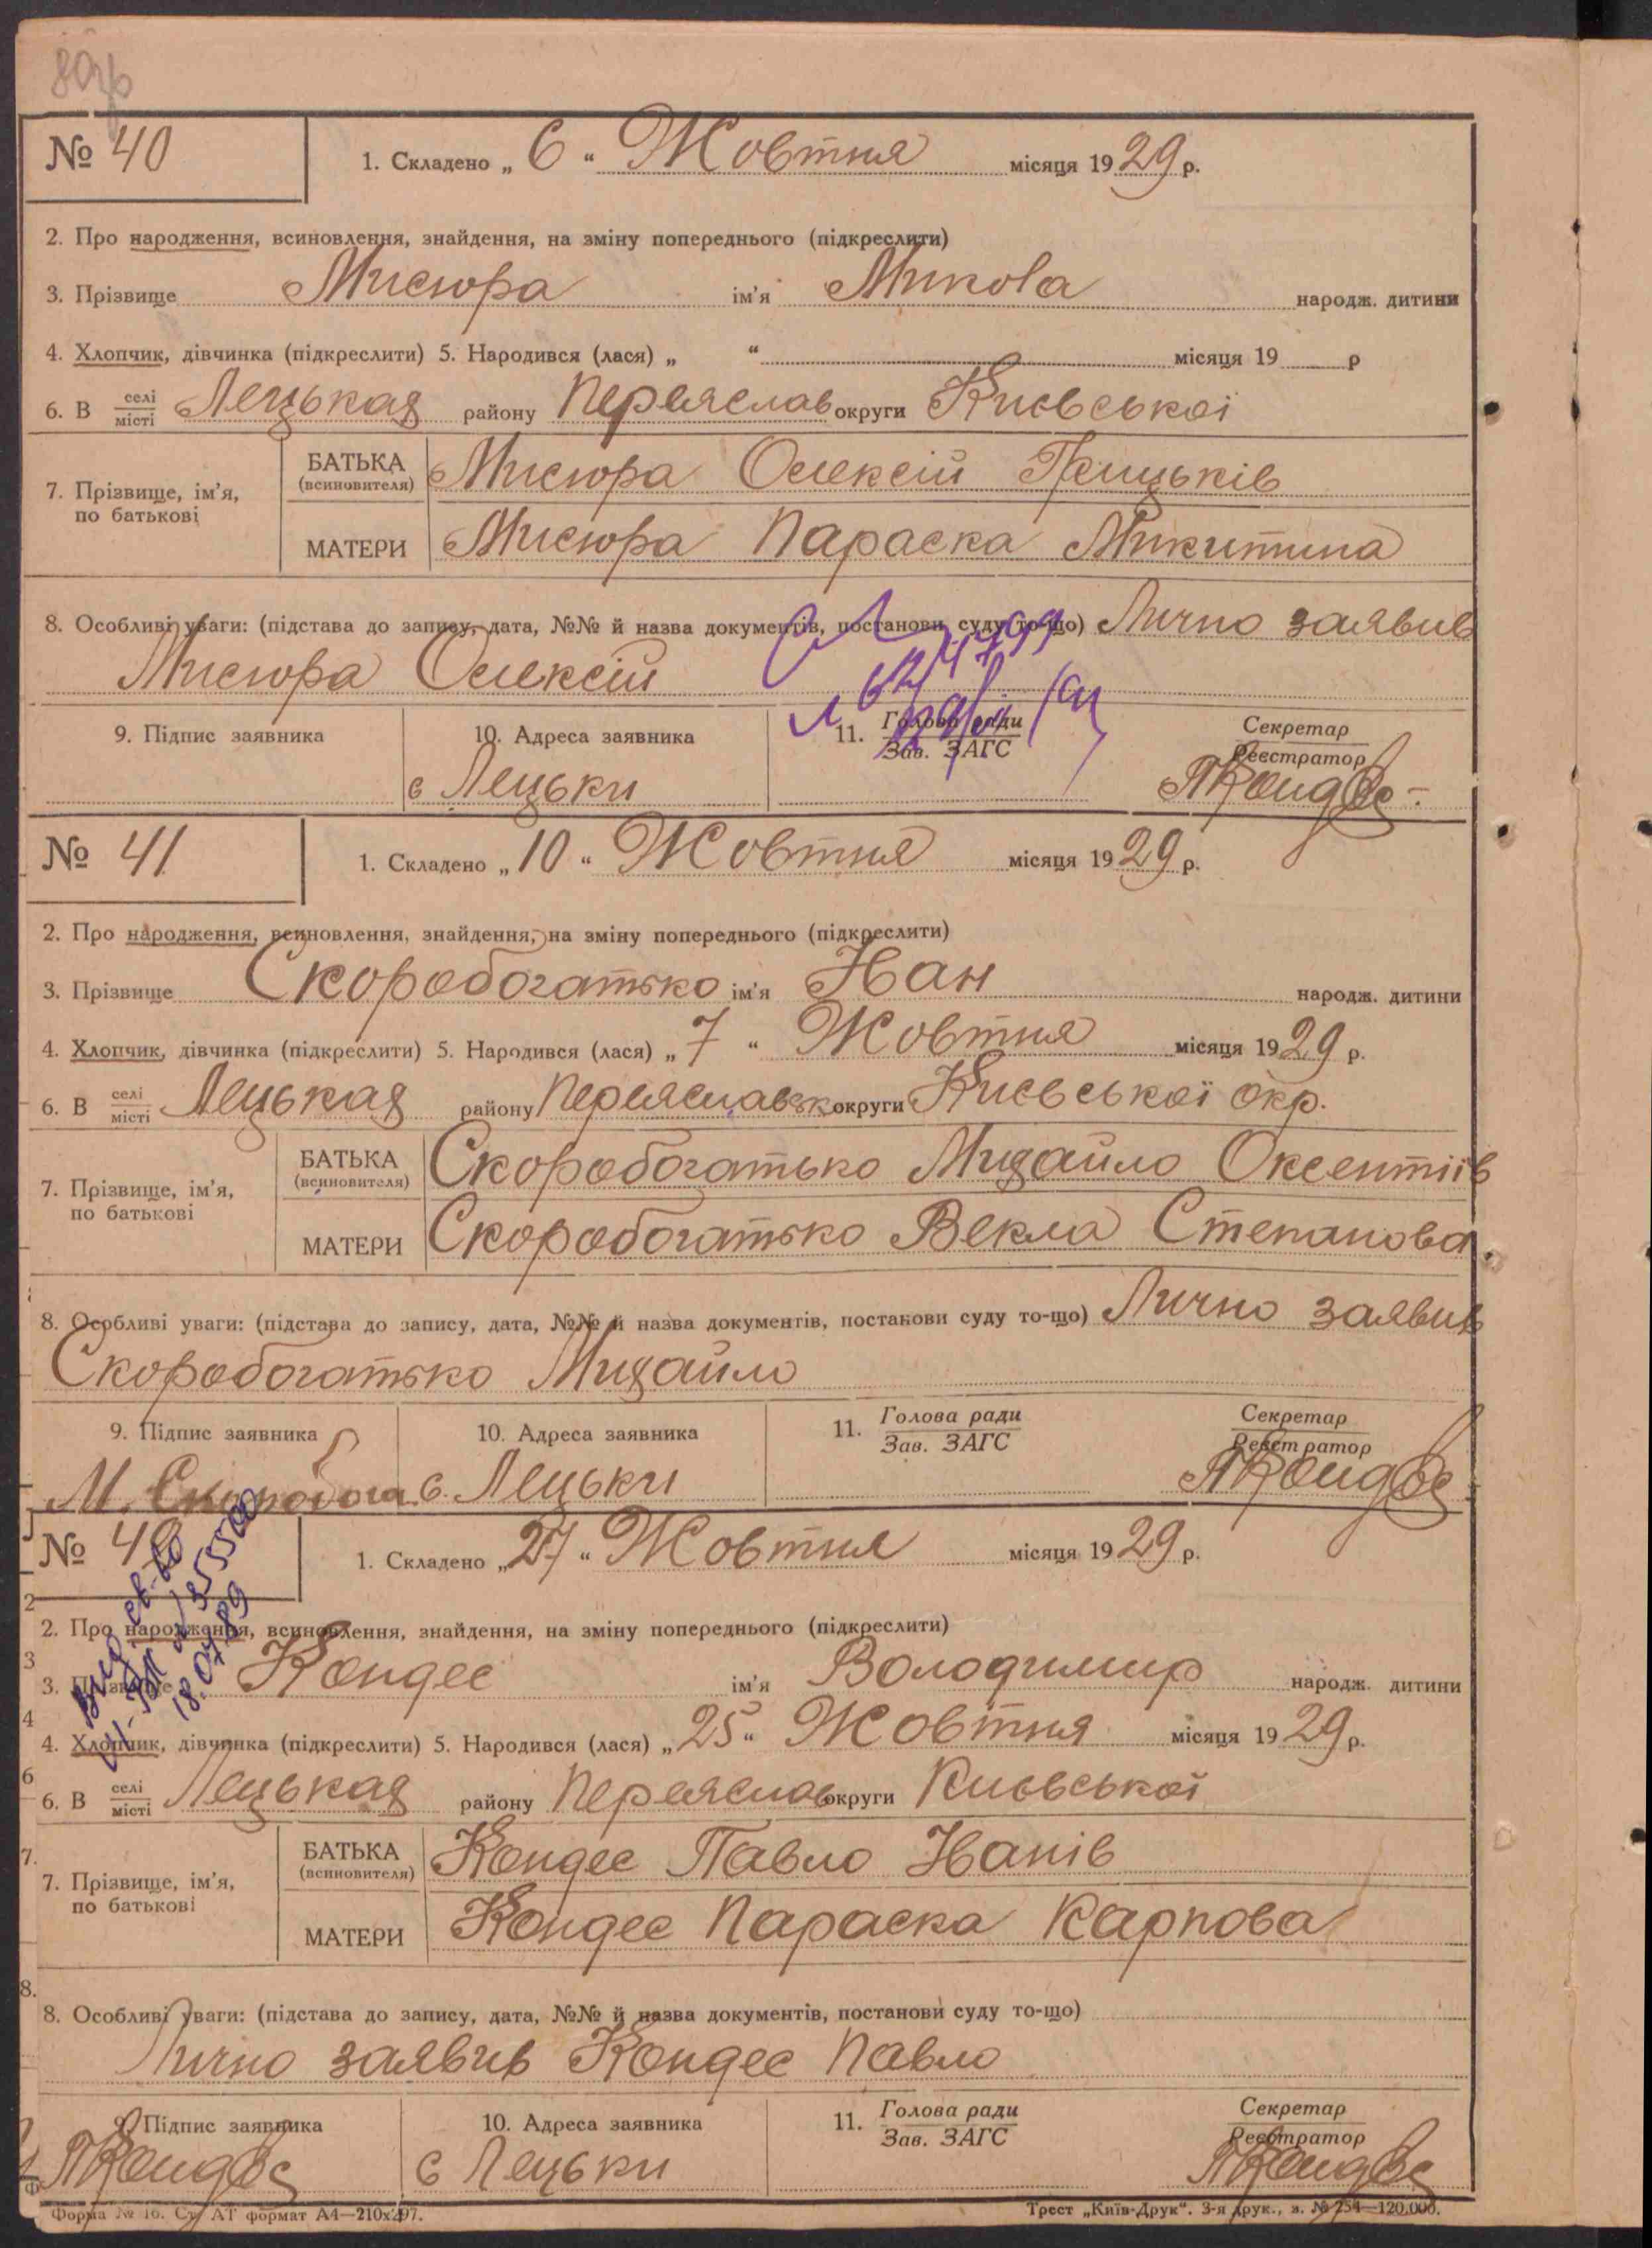 80зв
№ 40
1. Складено „ 6 “ Жовтня місяця 1929 р.
2. Про народження, всиновлення, знайдення, на зміну попереднього (підкреслити)
3. Прізвище Мисюра ім’я Микола народж. дитини
4. Хлопчик, дівчинка (підкреслити) 5. Народився (лася) „ “ місяця 19 р
6. В селі місті Лецьках району Переяслав округи Києвської
7. Прізвище, ім’я, по батькові
БАТЬКА (всиновителя) Мисюра Олексій Грицьків
МАТЕРИ Мисюра Параска Микитина
8. Особливі уваги: (підстава до запису, дата, №№ й назва документів, постанови суду то-що) Лично заявив
Мисюра Олексій
9. Підпис заявника 10. Адреса заявника 11. Голова ради Зав. ЗАГС Секретар Реєстратор
с Лецьки ПКондес
№ 41
1. Складено „ 10 “ Жовтня місяця 1929 р.
2. Про народження, всиновлення, знайдення, на зміну попереднього (підкреслити)
3. Прізвище Скоробогатько ім’я Іван народж. дитини
4. Хлопчик, дівчинка (підкреслити) 5. Народився (лася) „ 7 “ Жовтня місяця 1929 р.
6. В селі місті Лецьках району Переяславськ округи Києвської окр.
7. Прізвище, ім’я, по батькові
БАТЬКА (всиновителя) Скоробогатько Михайло Оксентіїв
МАТЕРИ Скоробогатько Векла Степанова.
8. Особливі уваги: (підстава до запису, дата, №№ й назва документів, постанови суду то-що) Лично заявив
Скоробогатько Михайло
9. Підпис заявника 10. Адреса заявника 11. Голова ради Зав. ЗАГС Секретар Реєстратор
М. Скоробога с. Лецьки ПКондес
№ 42
1. Складено „ 27 “ Жовтня місяця 1929 р.
2. Про народження, всиновлення, знайдення, на зміну попереднього (підкреслити)
3. Прізвище Кондес ім’я Володимир народж. дитини
4. Хлопчик, дівчинка (підкреслити) 5. Народився (лася) „ 25 “ Жовтня місяця 1929 р.
6. В селі місті Лецьках району Переяслав округи Києвської
7. Прізвище, ім’я, по батькові
БАТЬКА (всиновителя) Кондес Павло Іванів
МАТЕРИ Кондес Параска Карпова
8. Особливі уваги: (підстава до запису, дата, №№ й назва документів, постанови суду то-що)
Лично заявив Кондес Павло
9. Підпис заявника 10. Адреса заявника 11. Голова ради Зав. ЗАГС Секретар Реєстратор
ПКондес с Лецьки ПКондес
Форма № 16. Ст. АТ формат А4—210х297. Трест „Київ-Друк“. 3-я друк., з. № 254—120.000.